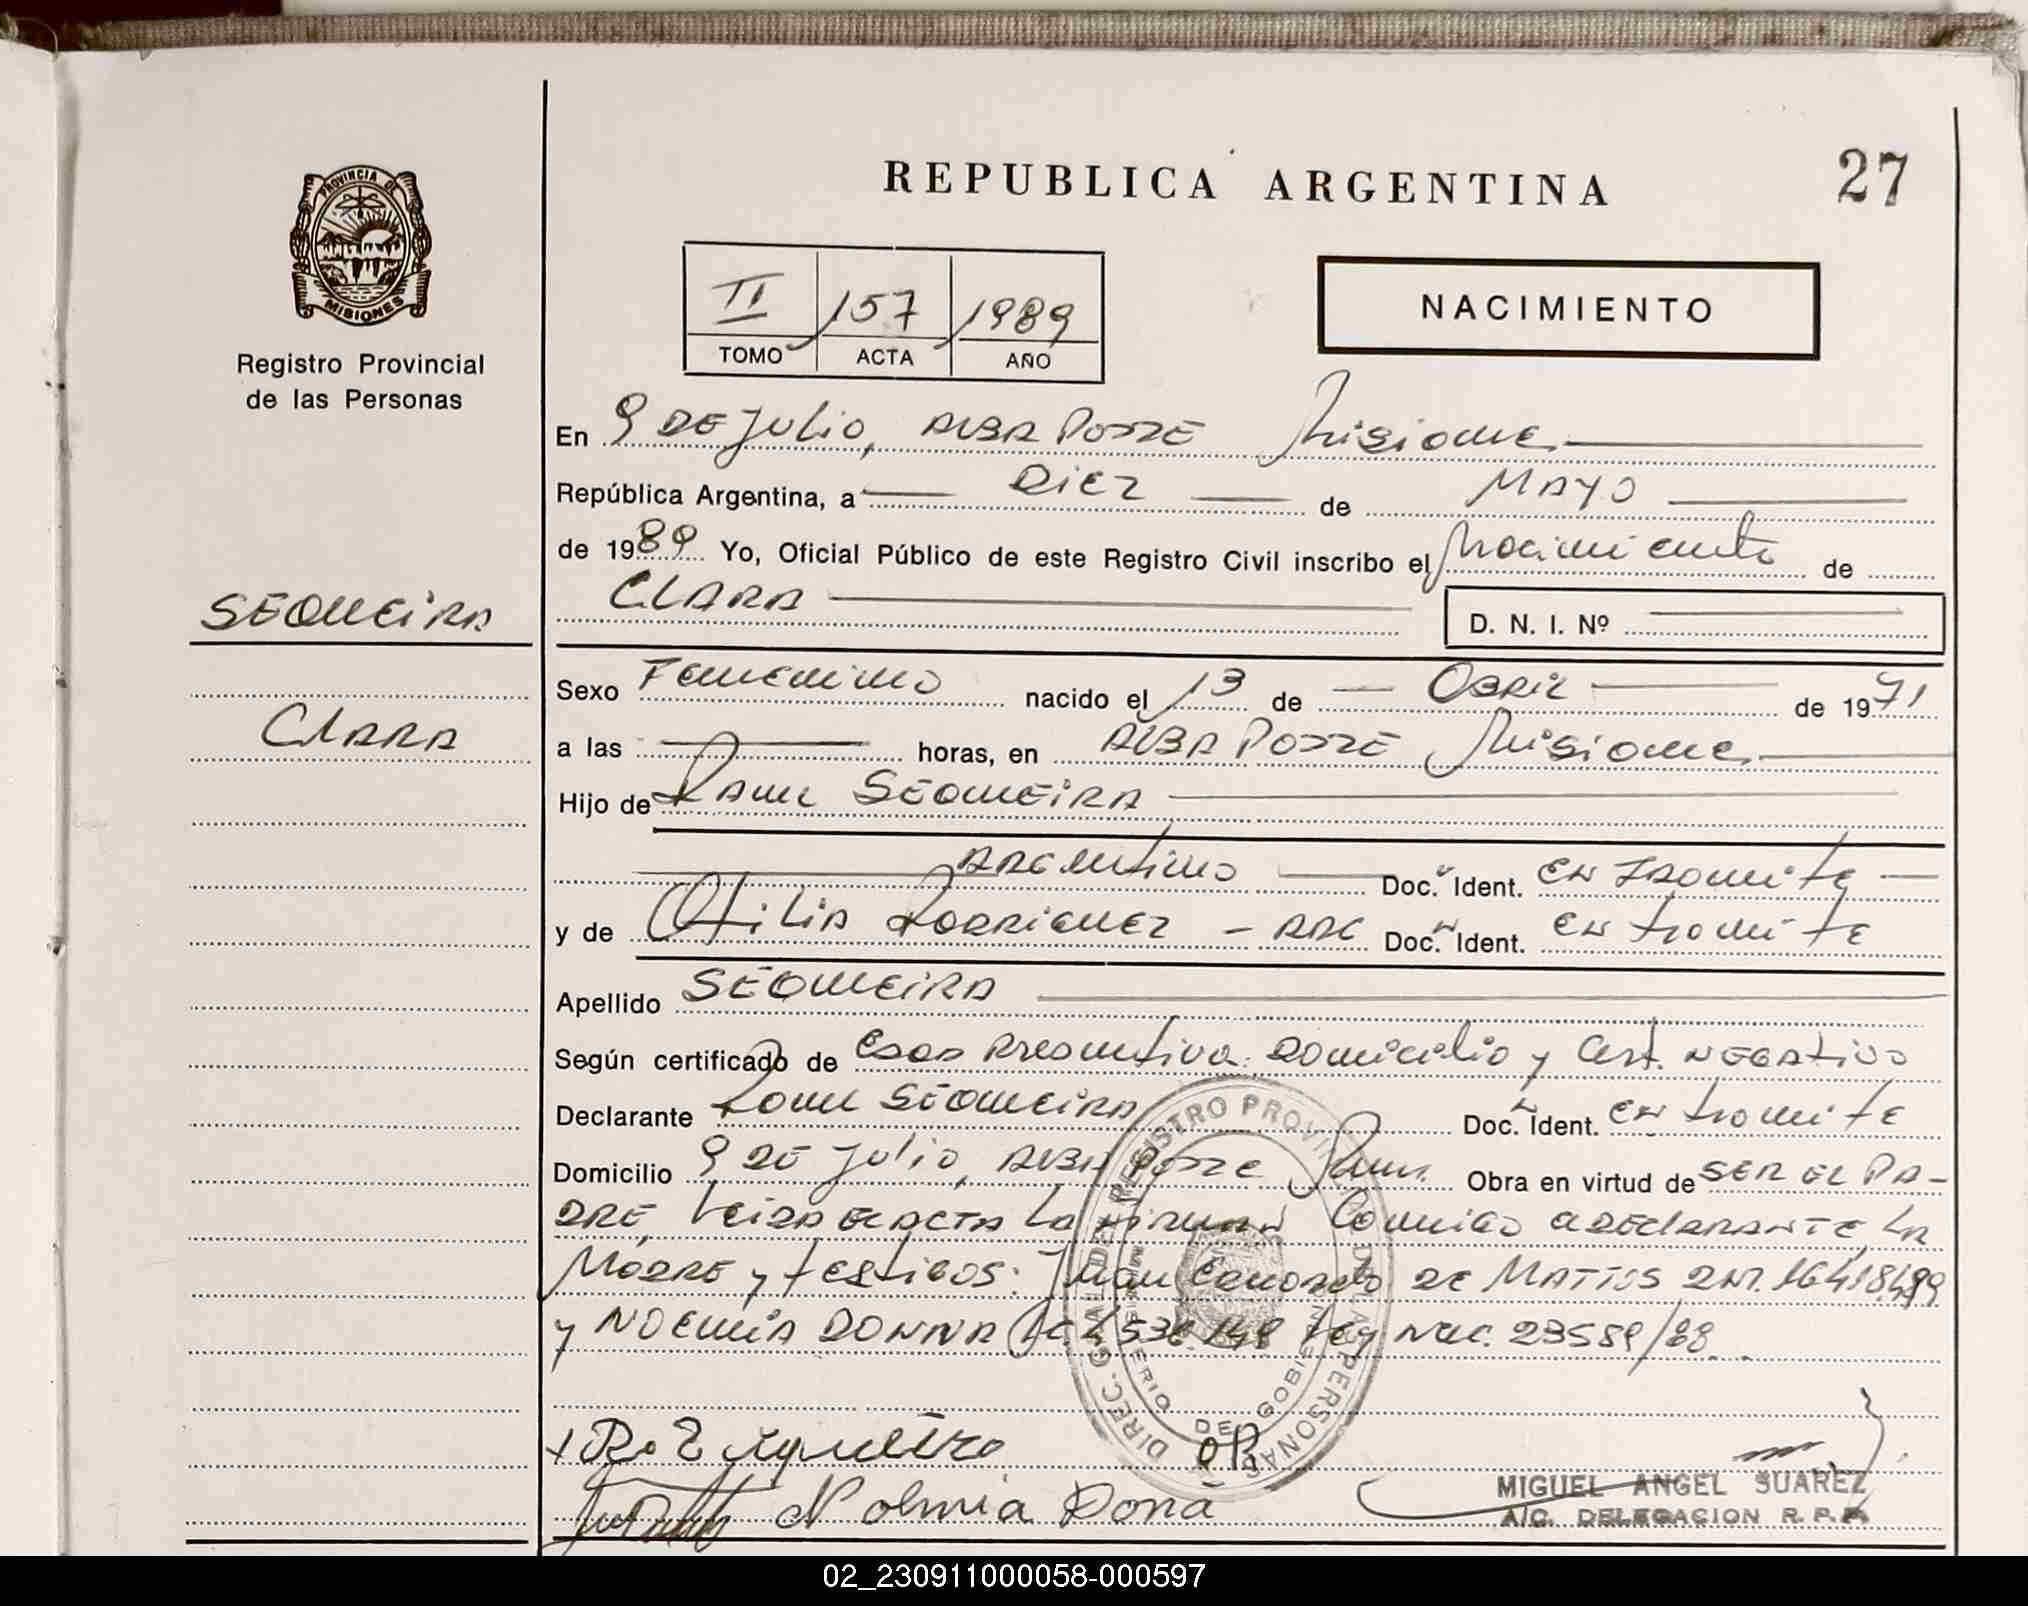 REPUBLICA ARGENTINA
27
PROVINCIA DE
MISIONES
Registro Provincial
de las Personas
II 157 1989
TOMO ACTA AÑO
NACIMIENTO
En 9 DE Julio, ALBA POSSE Misiones
República Argentina, a Diez de MAYO
de 1989 Yo, Oficial Público de este Registro Civil inscribo el Nacimiento de
CLARA
D. N. I. Nº
SEQUEIRA
CLARA
Sexo Femenino nacido el 13 de Abril de 1971
a las horas, en ALBA POSSE Misiones
Hijo de Raul SEQUEIRA
ARGentino Doc. Ident. En Tramite
y de Otilia Rodriguez - ARG Doc. Ident. En tramite
Apellido SEQUEIRA
Según certificado de Edad Presuntiva Domicilio y Cert. NEGATIVO
Declarante Raul SEQUEIRA Doc. Ident. En tramite
Domicilio 9 DE Julio, ALBA POSSE Obra en virtud de SER EL PA-
DRE, Leida el ACTA La firman Conmigo el DEClARANTE, LA
MADRE y testigos: Juan DE MATTOS 16418499
y NOEMIA DONNA Ley Nac. 23589/88
DIREC. GRAL DEL REGISTRO PROVINCIAL DE LAS PERSONAS
MINISTERIO DE GOBIERNO
MISIONES
Nolmia Dona
MIGUEL ANGEL SUAREZ
A/C. DELEGACION R. P. P.
02_230911000058-000597